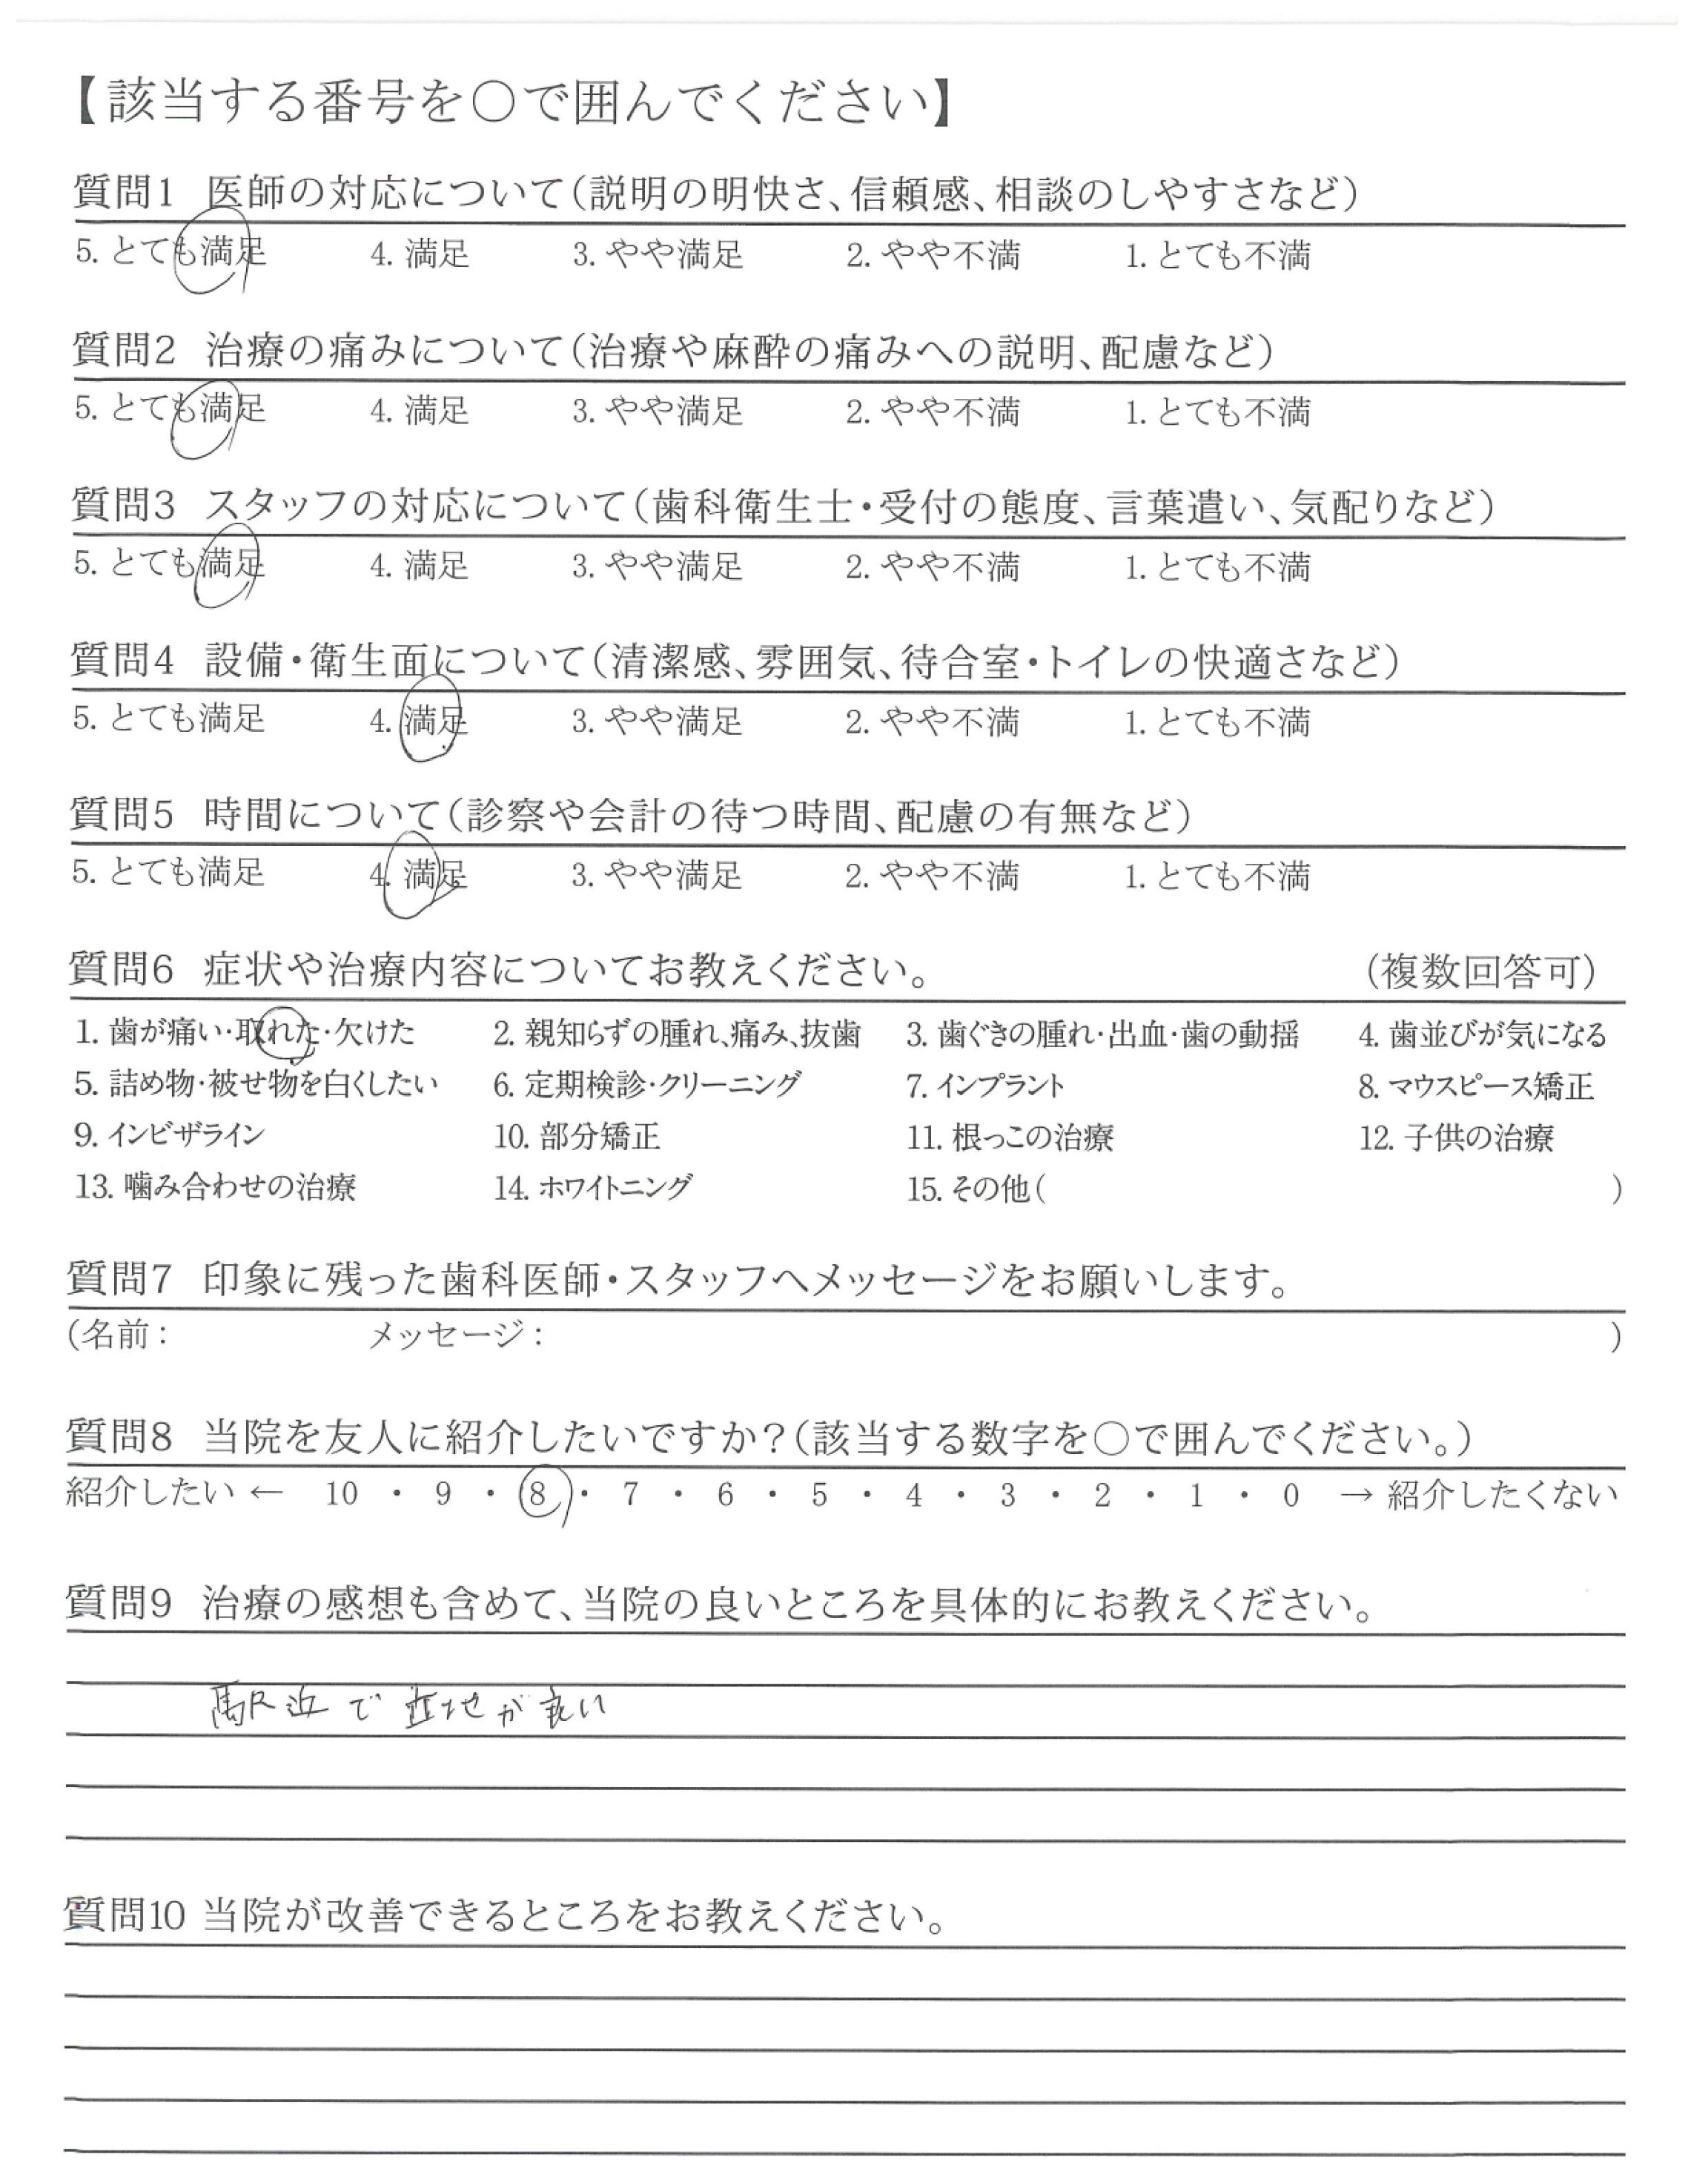 【該当する番号を○で囲んでください】
質問1 医師の対応について(説明の明快さ、信頼感、相談のしやすさなど)
5. とても満足 4. 満足 3. やや満足 2. やや不満 1. とても不満
質問2 治療の痛みについて(治療や麻酔の痛みへの説明、配慮など)
5. とても満足 4. 満足 3. やや満足 2. やや不満 1. とても不満
質問3 スタッフの対応について(歯科衛生士・受付の態度、言葉遣い、気配りなど)
5. とても満足 4. 満足 3. やや満足 2. やや不満 1. とても不満
質問4 設備・衛生面について(清潔感、雰囲気、待合室・トイレの快適さなど)
5. とても満足 4. 満足 3. やや満足 2. やや不満 1. とても不満
質問5 時間について(診察や会計の待つ時間、配慮の有無など)
5. とても満足 4. 満足 3. やや満足 2. やや不満 1. とても不満
質問6 症状や治療内容についてお教えください。 (複数回答可)
1. 歯が痛い・取れた・欠けた 2. 親知らずの腫れ、痛み、抜歯 3. 歯ぐきの腫れ・出血・歯の動揺 4. 歯並びが気になる
5. 詰め物・被せ物を白くしたい 6. 定期検診・クリーニング 7. インプラント 8. マウスピース矯正
9. インビザライン 10. 部分矯正 11. 根っこの治療 12. 子供の治療
13. 噛み合わせの治療 14. ホワイトニング 15. その他( )
質問7 印象に残った歯科医師・スタッフへメッセージをお願いします。
(名前: メッセージ: )
質問8 当院を友人に紹介したいですか?(該当する数字を○で囲んでください。)
紹介したい ← 10 ・ 9 ・ 8 ・ 7 ・ 6 ・ 5 ・ 4 ・ 3 ・ 2 ・ 1 ・ 0 → 紹介したくない
質問9 治療の感想も含めて、当院の良いところを具体的にお教えください。
駅近で立地が良い
質問10 当院が改善できるところをお教えください。